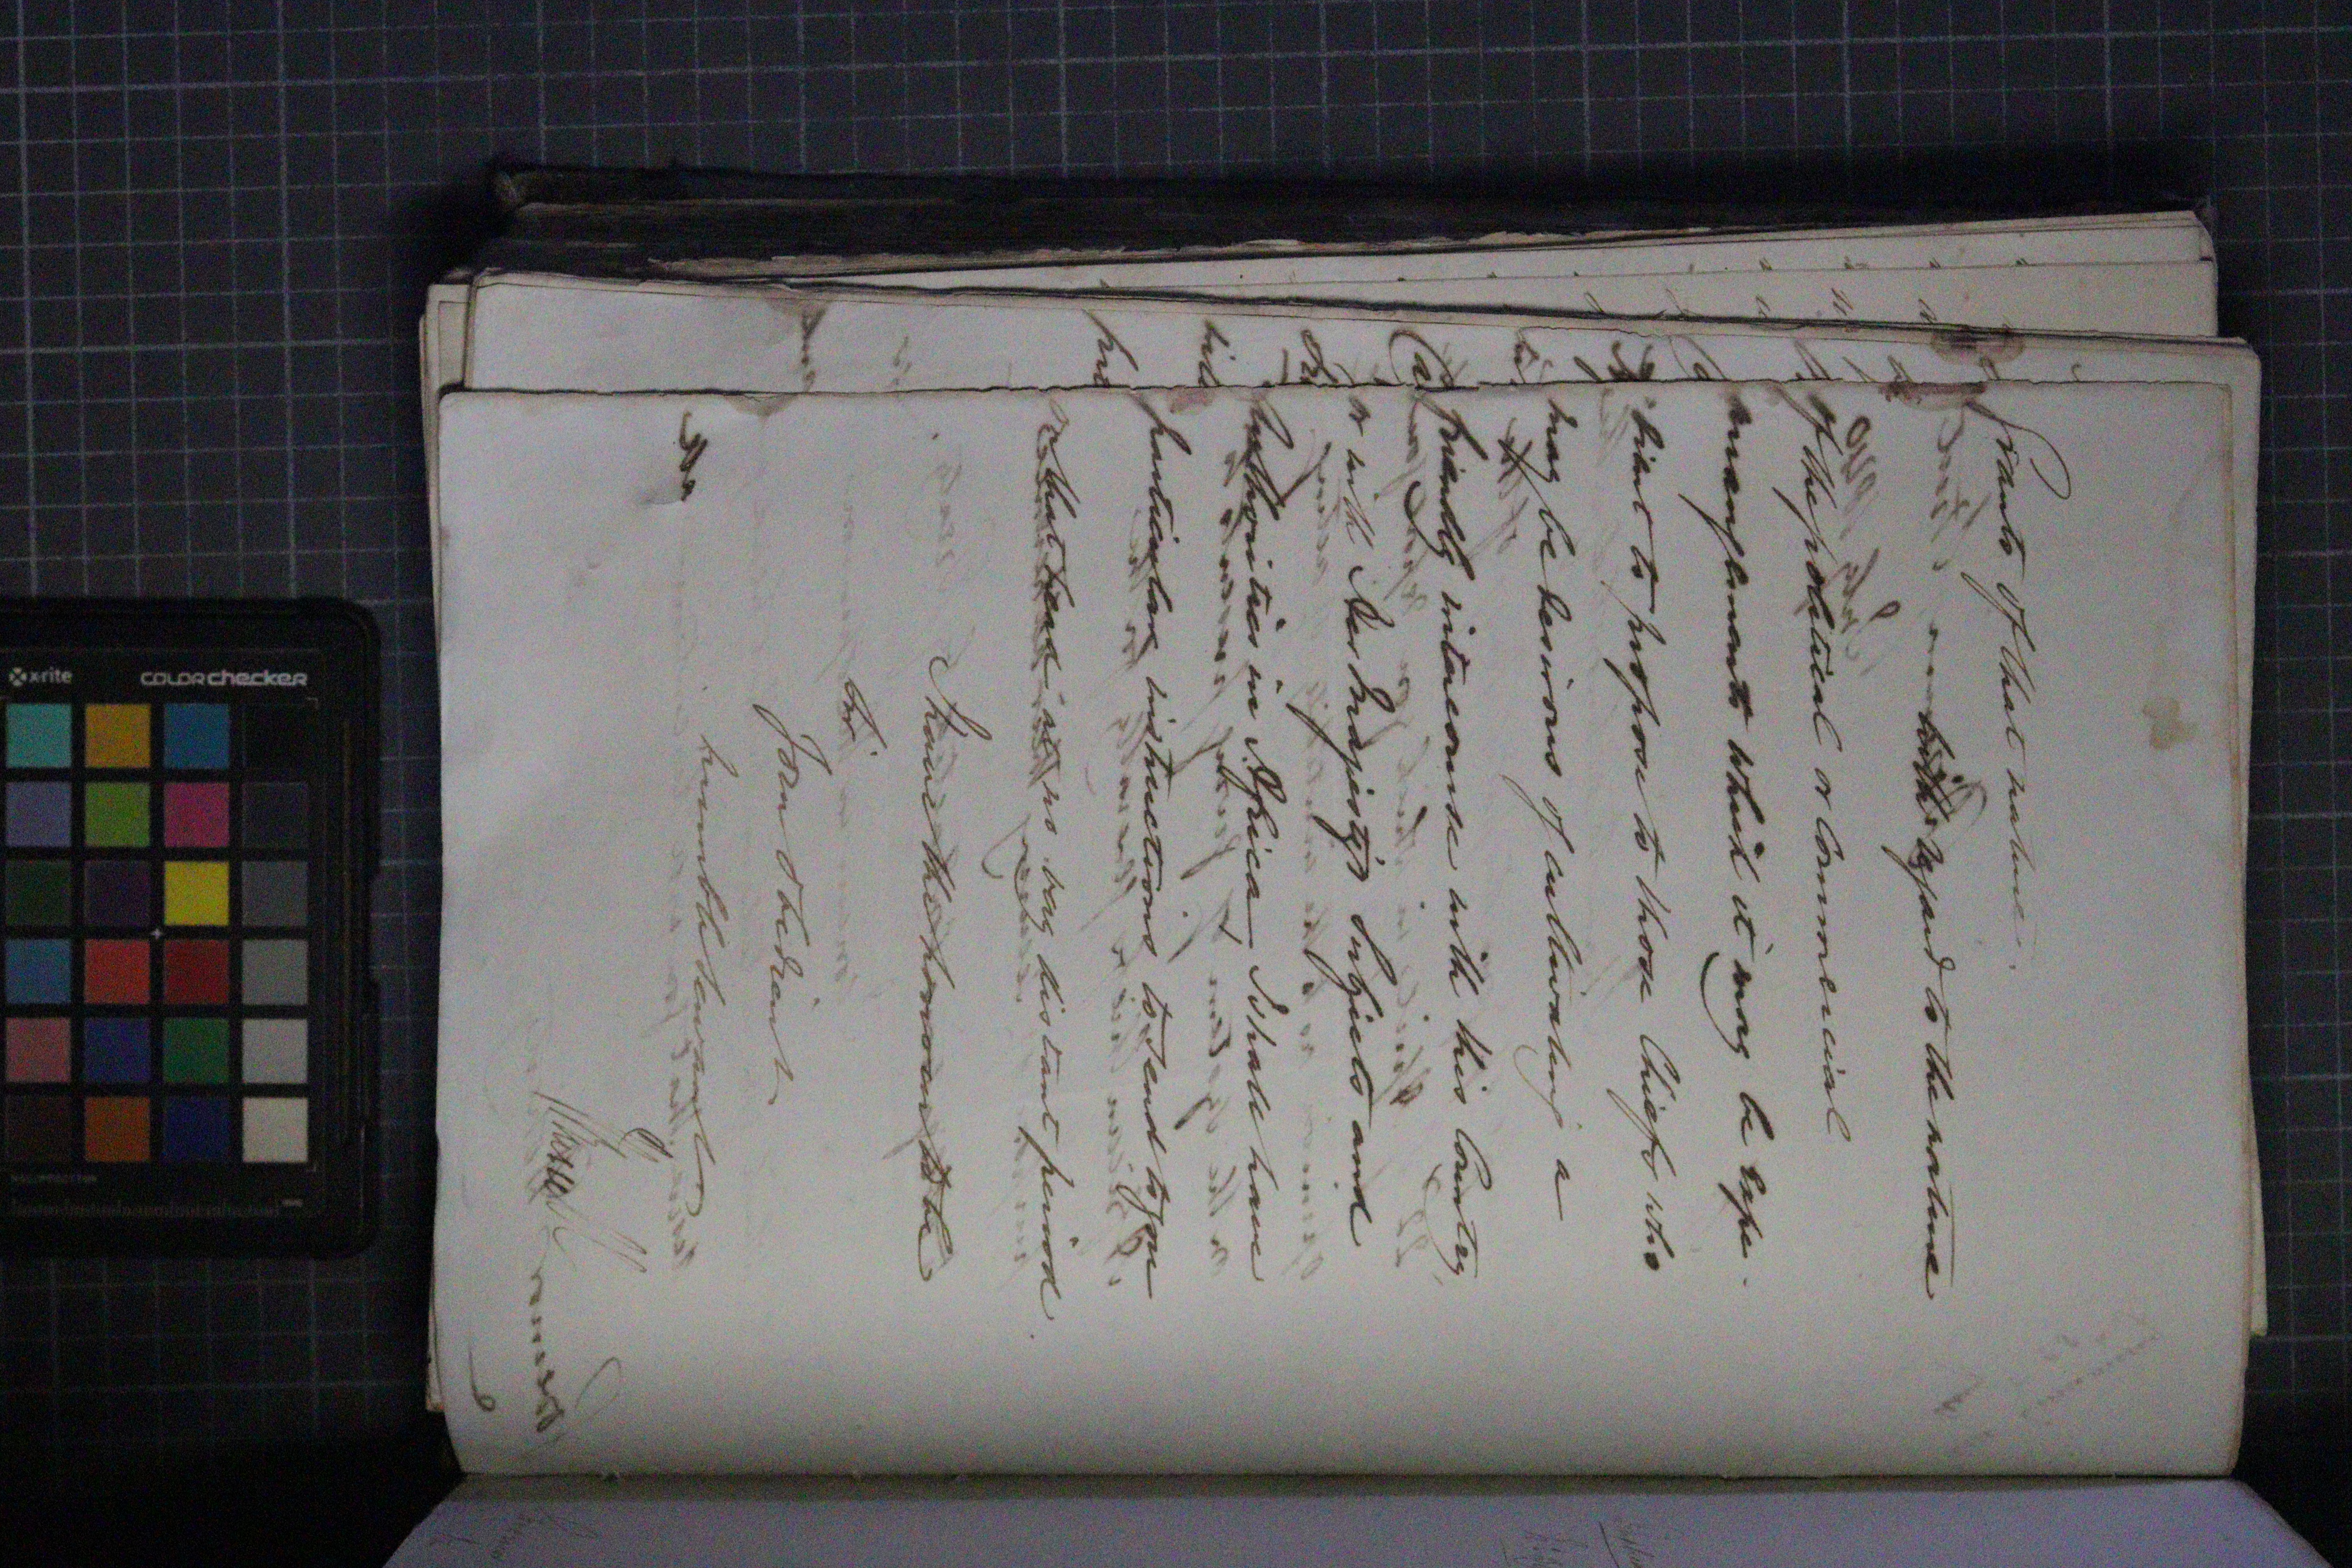 Grants of that nature.
With regard to the nature
of the political or Commercial
arrangements which it may be expe-
dient to propose to those Chiefs who
may be desirous of cultivating a
friendly intercourse with this Country
or with Her Majesty's Subjects and
Authorities in Africa I shall have
particular instructions to send to you
at no very distant period.
I have the honour to be
Sir
Your obedient
humble Servant
x-rite
colorchecker